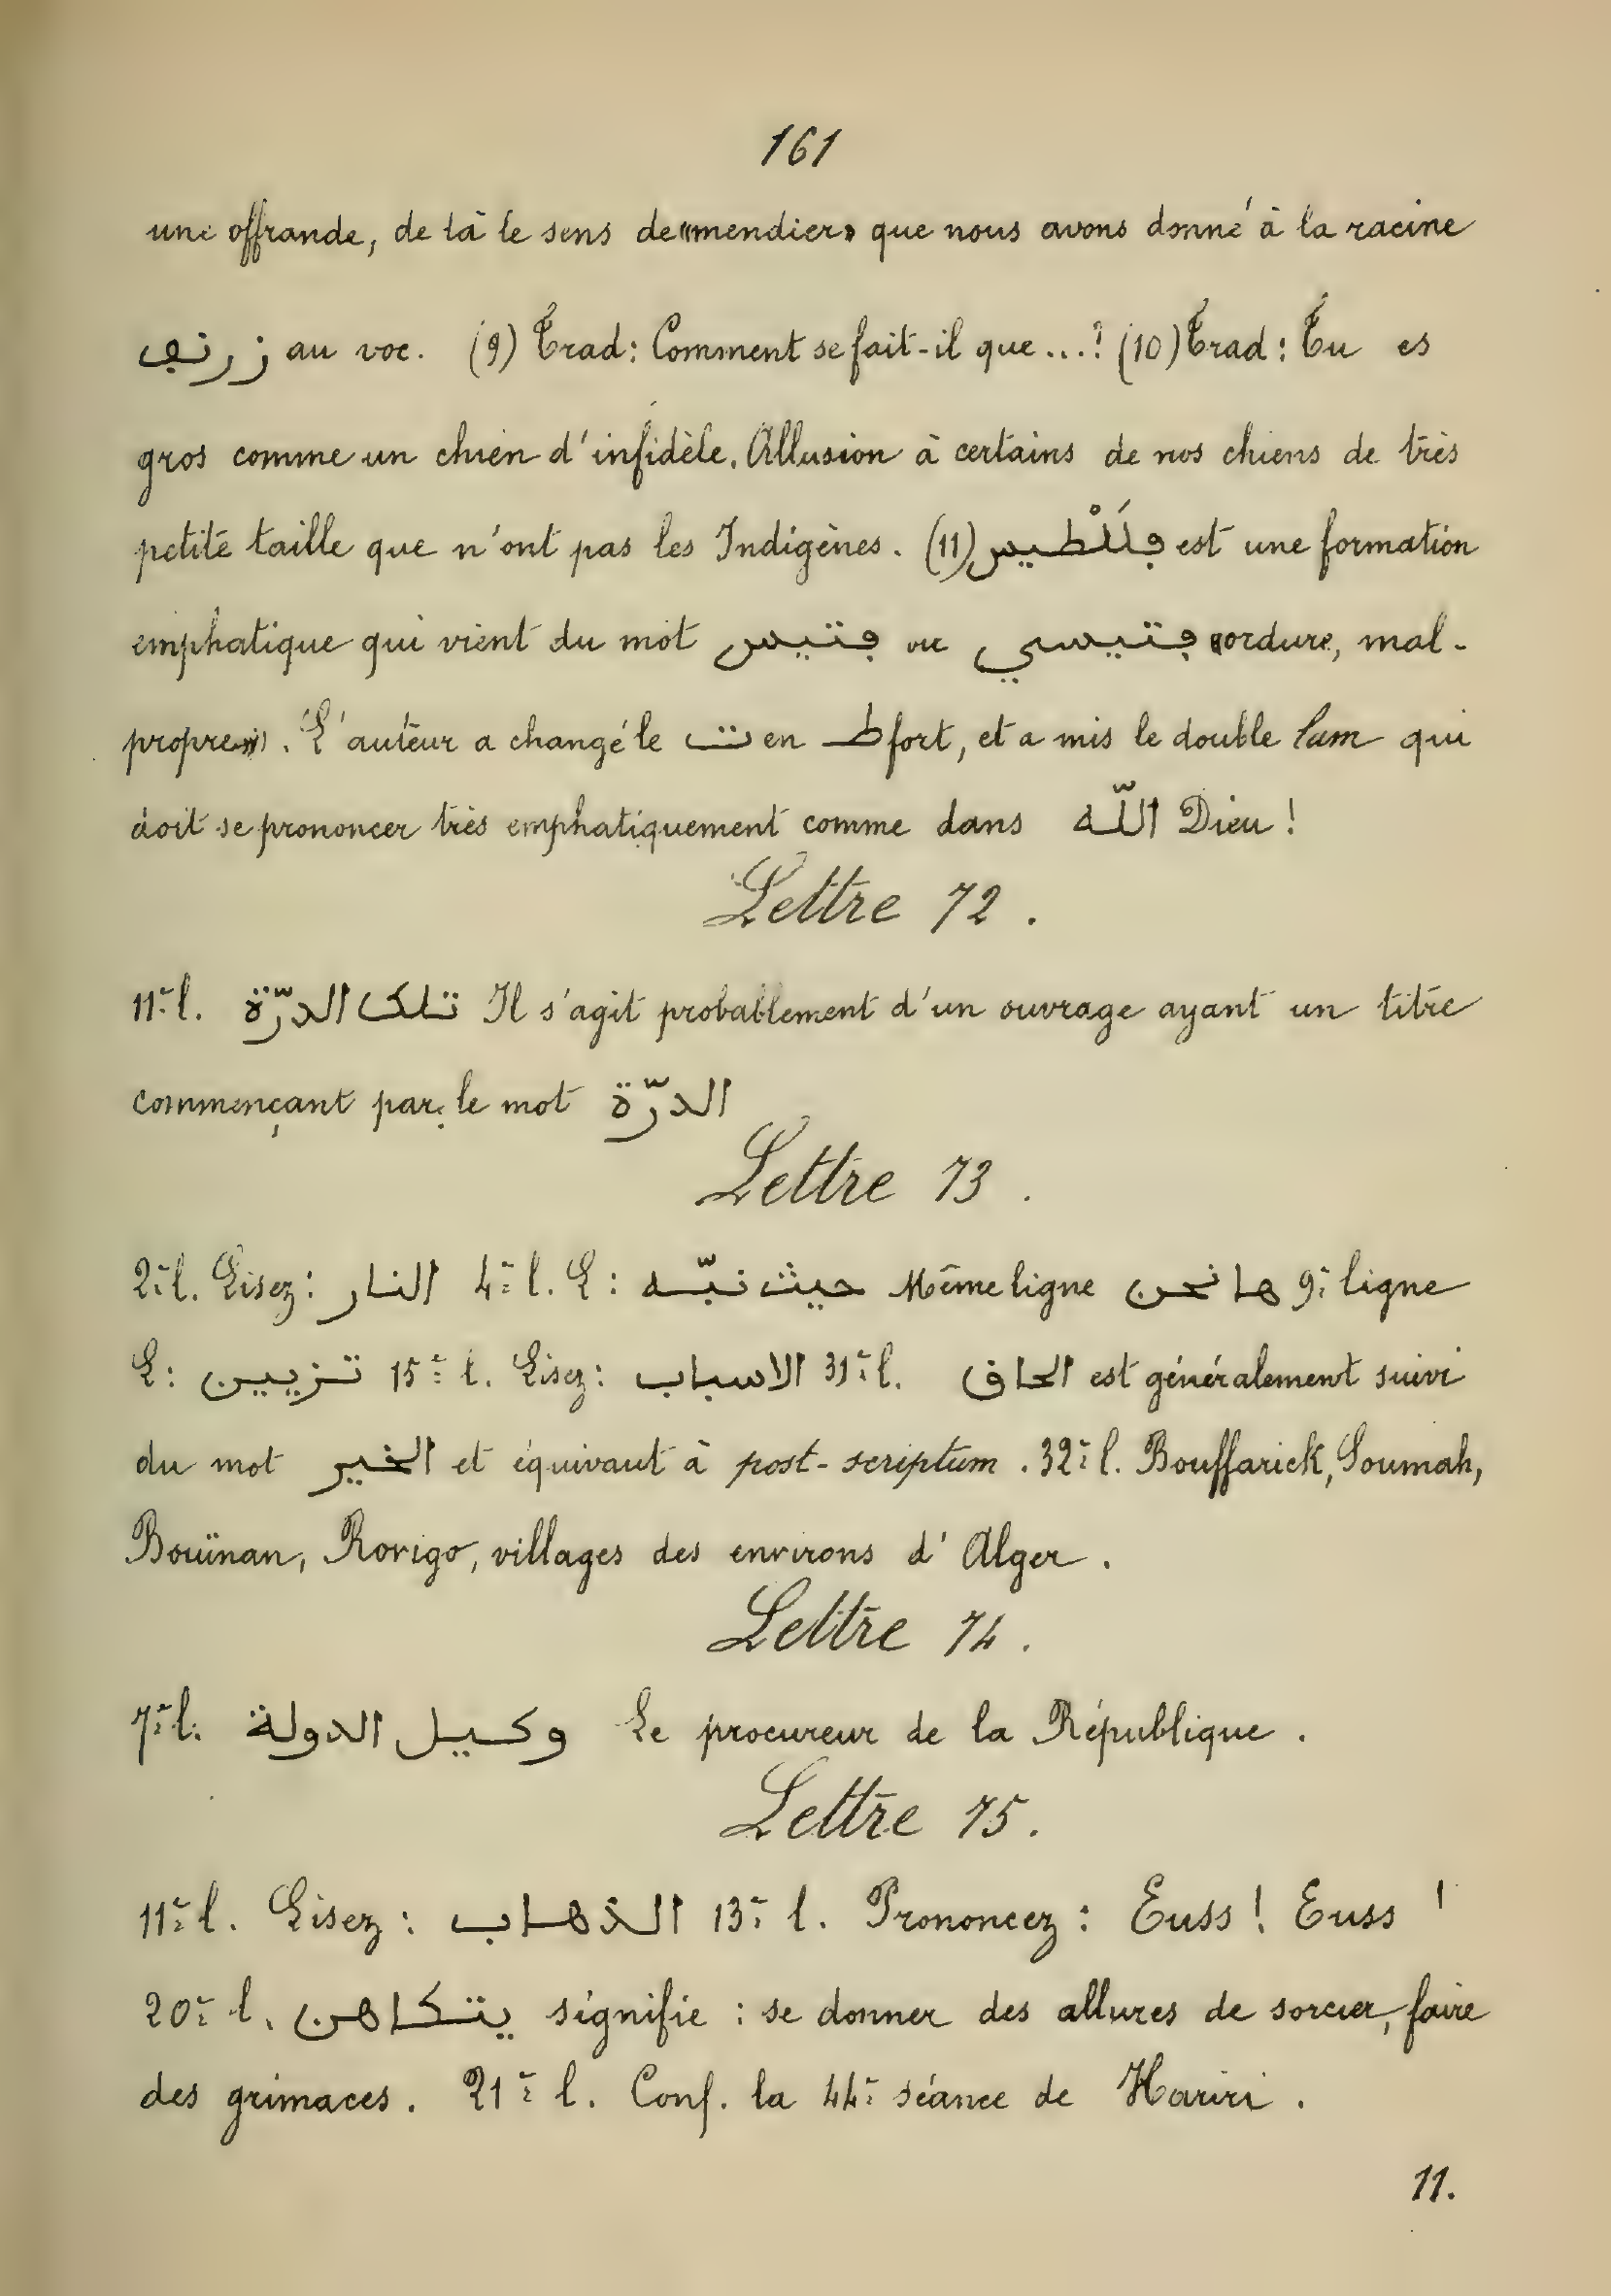 161
une offrande, de là le sens de «mendier» que nous avons donné à la racine
زرنب au voc. (9) Trad: Comment se fait-il que...? (10) Trad: Tu es
gros comme un chien d'infidèle. Allusion à certains de nos chiens de très
petite taille que n'ont pas les Indigènes. (11) ڢلَلْطيس est une formation
emphatique qui vient du mot ڢتيس ou ڢتيسي «ordure, mal-
propre». L'auteur a changé le ت en ط fort, et a mis le double lam qui
doit se prononcer très emphatiquement comme dans اللّه Dieu!
Lettre 72.
11e l. تلك الدرّة Il s'agit probablement d'un ouvrage ayant un titre
commençant par le mot الدرّة
Lettre 73.
2e l. Lisez: النار 4e l. L: حيث نبّه Même ligne ها نحن 9e ligne
L: تزيين 15e l. Lisez: الاسباب 31e l. الحاق est généralement suivi
du mot الخير et équivaut à post-scriptum. 32e l. Bouffarick, Soumah,
Bouïnan, Rovigo, villages des environs d'Alger.
Lettre 74.
7e l. وكيل الدولة Le procureur de la République.
Lettre 75.
11e l. Lisez: الذهاب 13e l. Prononcez: Euss! Euss!
20e l. يتكاهن signifie: se donner des allures de sorcier, faire
des grimaces. 21e l. Conf. la 44e séance de Hariri.
11.